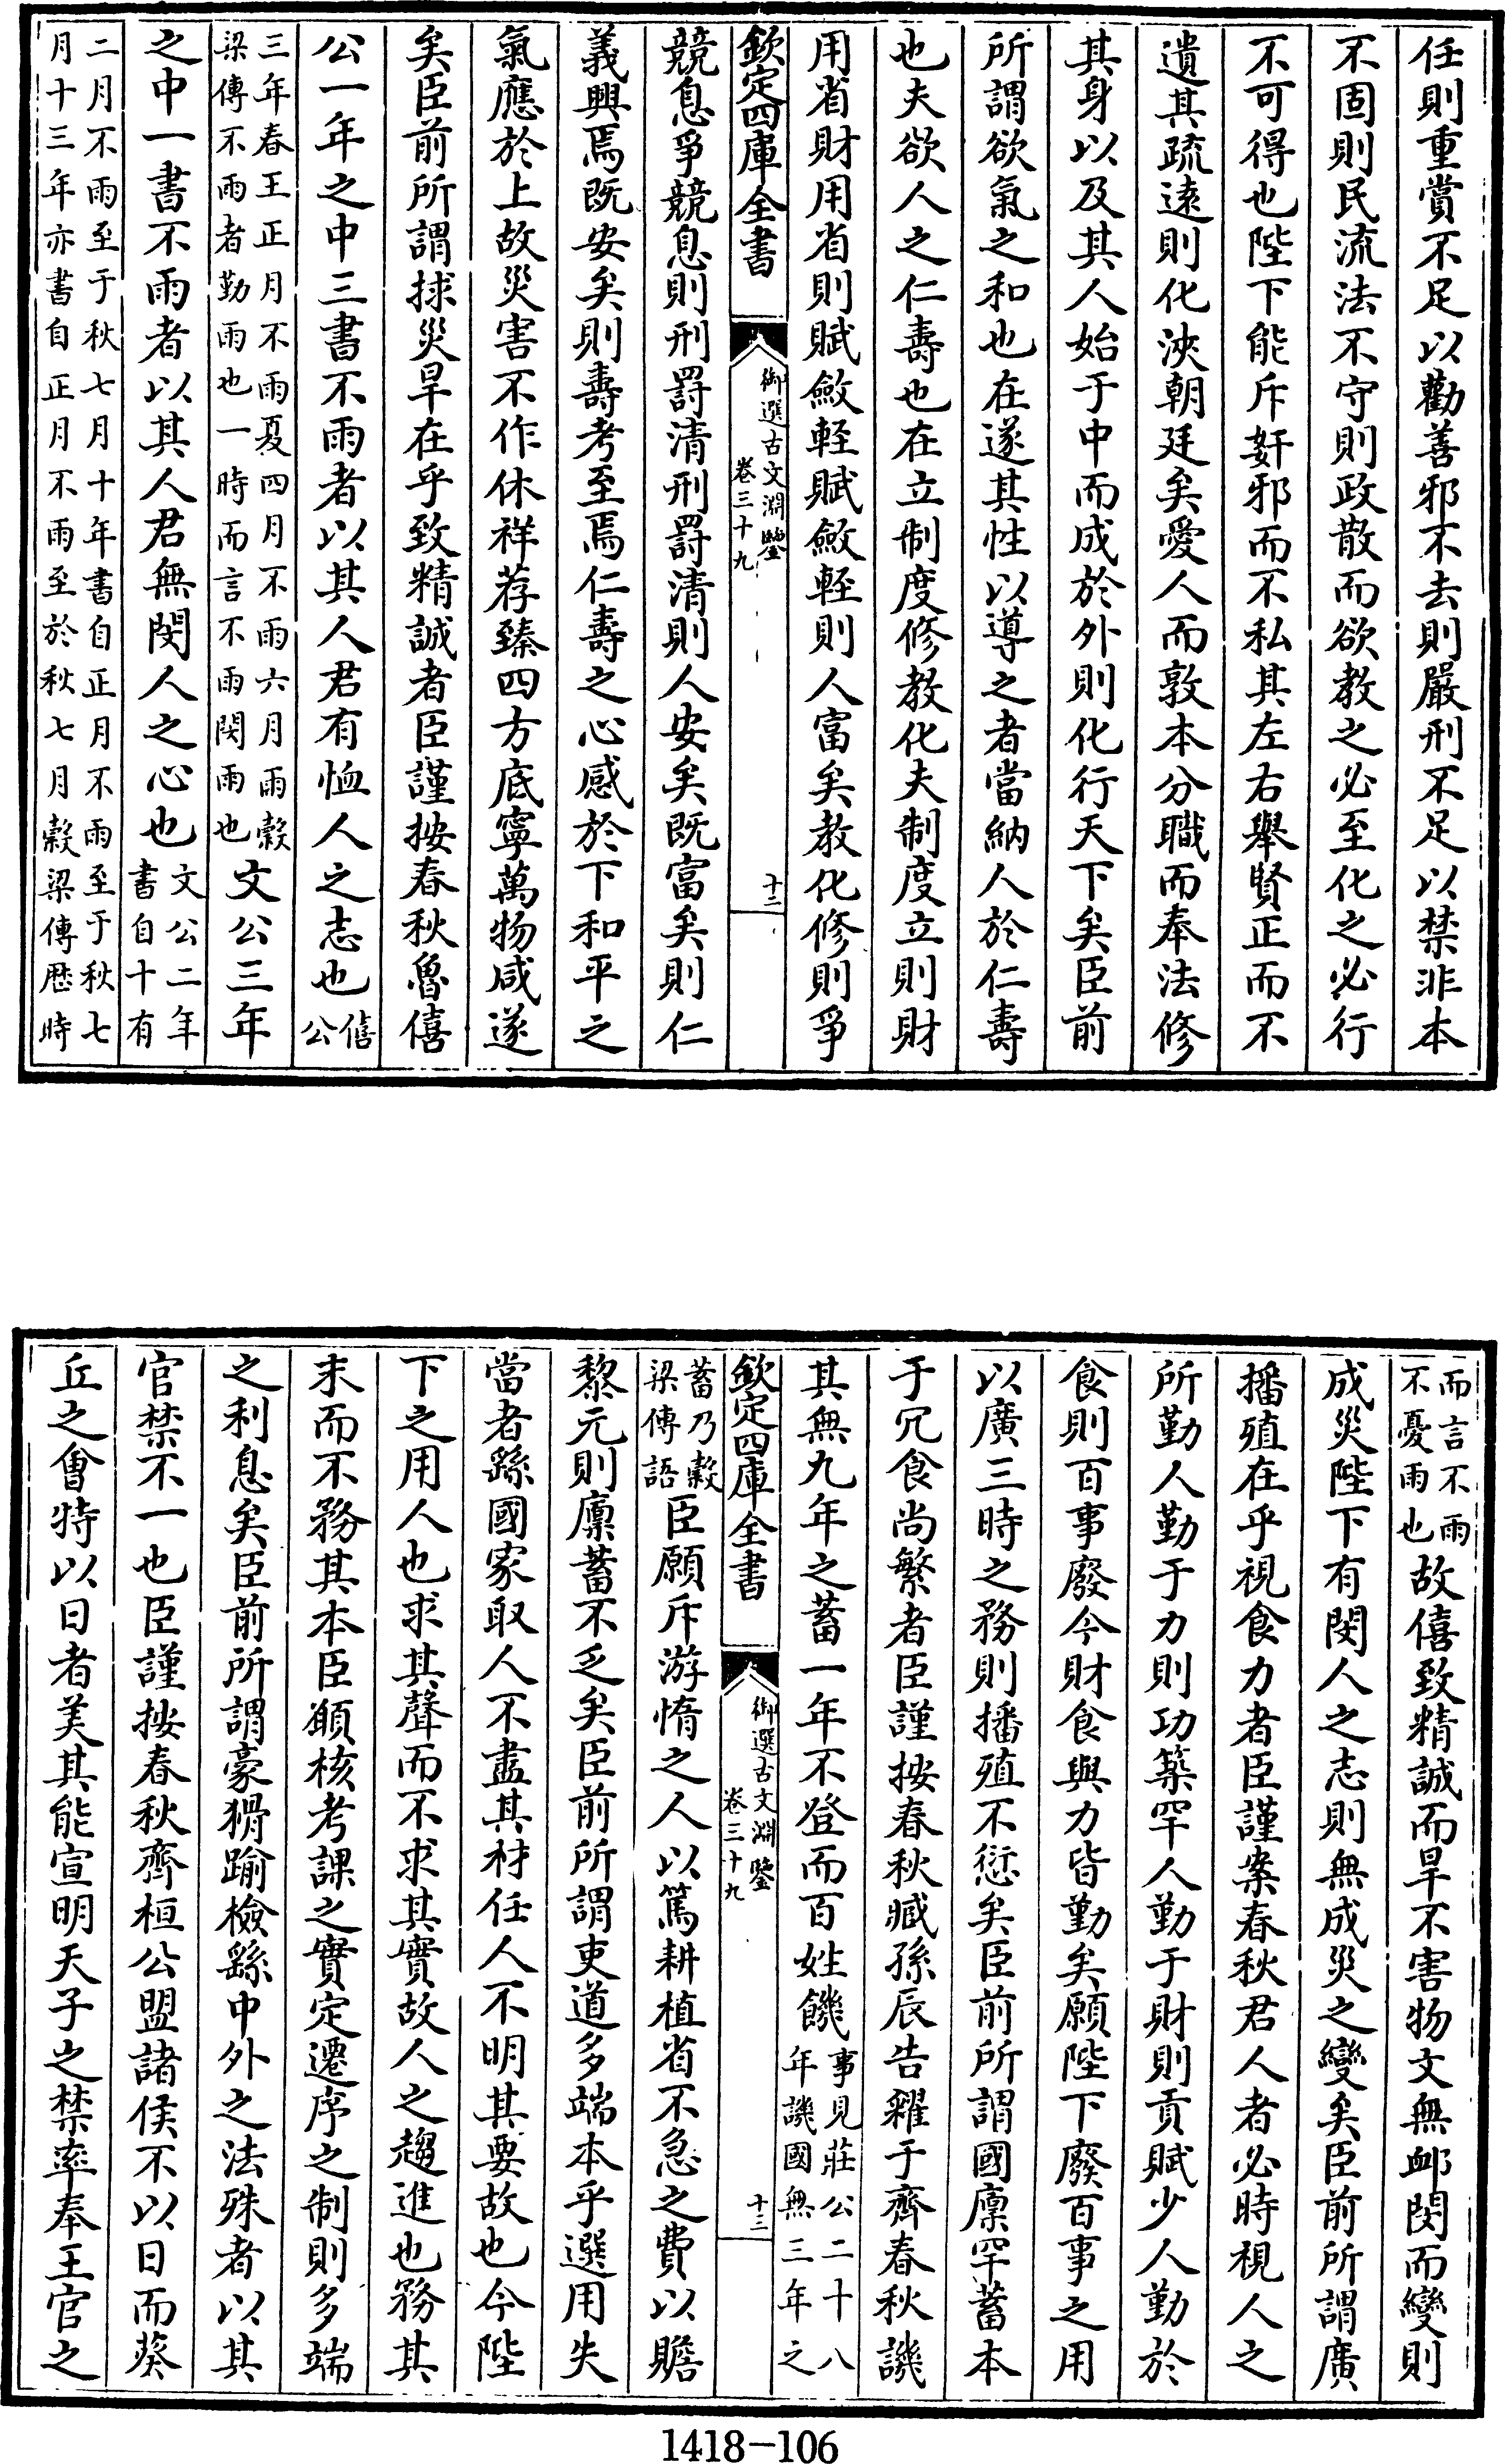 任則重賞不足以勸善邪不去則嚴刑不足以禁非本
不固則民流法不守則政散而欲教之必至化之必行
不可得也陛下能斥姧邪而不私其左右舉賢正而不
遺其疏逺則化浹朝廷矣愛人而敦本分職而奉法修
其身以及其人始于中而成於外則化行天下矣臣前
所謂欲氣之和也在遂其性以導之者當納人於仁壽
也夫欲人之仁壽也在立制度修教化夫制度立則財
用省財用省則賦斂輕賦斂輕則人富矣教化修則爭
欽定四庫全書
御選古文淵鑒
卷三十九
十二
競息爭競息則刑罰清刑罰清則人安矣既富矣則仁
義興焉既安矣則壽考至焉仁壽之心感於下和平之
氣應於上故災害不作休祥荐臻四方底寧萬物咸遂
矣臣前所謂捄災旱在乎致精誠者臣謹按春秋魯僖
公一年之中三書不雨者以其人君有恤人之志也僖公
三年春王正月不雨夏四月不雨六月雨穀
梁傳不雨者勤雨也一時而言不雨閔雨也
文公三年
之中一書不雨者以其人君無閔人之心也文公二年書自十有
二月不雨至于秋七月十年書自正月不雨至于秋七
月十三年亦書自正月不雨至於秋七月穀梁傳歴時
而言不雨
不憂雨也
故僖致精誠而旱不害物文無衈閔而變則
成災陛下有閔人之志則無成災之變矣臣前所謂廣
播殖在乎視食力者臣謹案春秋君人者必時視人之
所勤人勤于力則功築罕人勤于財則貢賦少人勤於
食則百事廢今財食與力皆勤矣願陛下廢百事之用
以廣三時之務則播殖不愆矣臣前所謂國廩罕蓄本
于冗食尚繁者臣謹按春秋臧孫辰告糴于齊春秋譏
其無九年之蓄一年不登而百姓饑事見莊公二十八年譏國無三年之
欽定四庫全書
御選古文淵鑒
卷三十九
十三
蓄乃穀
梁傳語
臣願斥游惰之人以篤耕植省不急之費以贍
黎元則廩蓄不乏矣臣前所謂吏道多端本乎選用失
當者繇國家取人不盡其材任人不明其要故也今陛
下之用人也求其聲而不求其實故人之趨進也務其
末而不務其本臣願核考課之實定遷序之制則多端
之利息矣臣前所謂豪猾踰檢繇中外之法殊者以其
官禁不一也臣謹按春秋齊桓公盟諸侯不以日而葵
丘之會特以日者美其能宣明天子之禁率奉王官之
1418-106